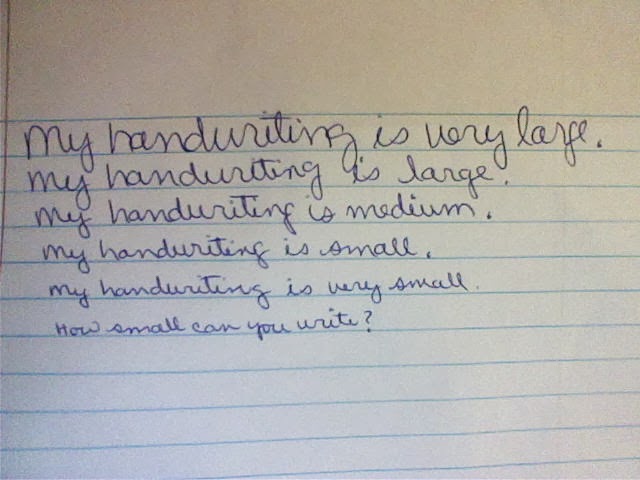 My handwriting is very large.
My handwriting is large.
My handwriting is medium.
My handwriting is small.
My handwriting is very small.
How small can you write?